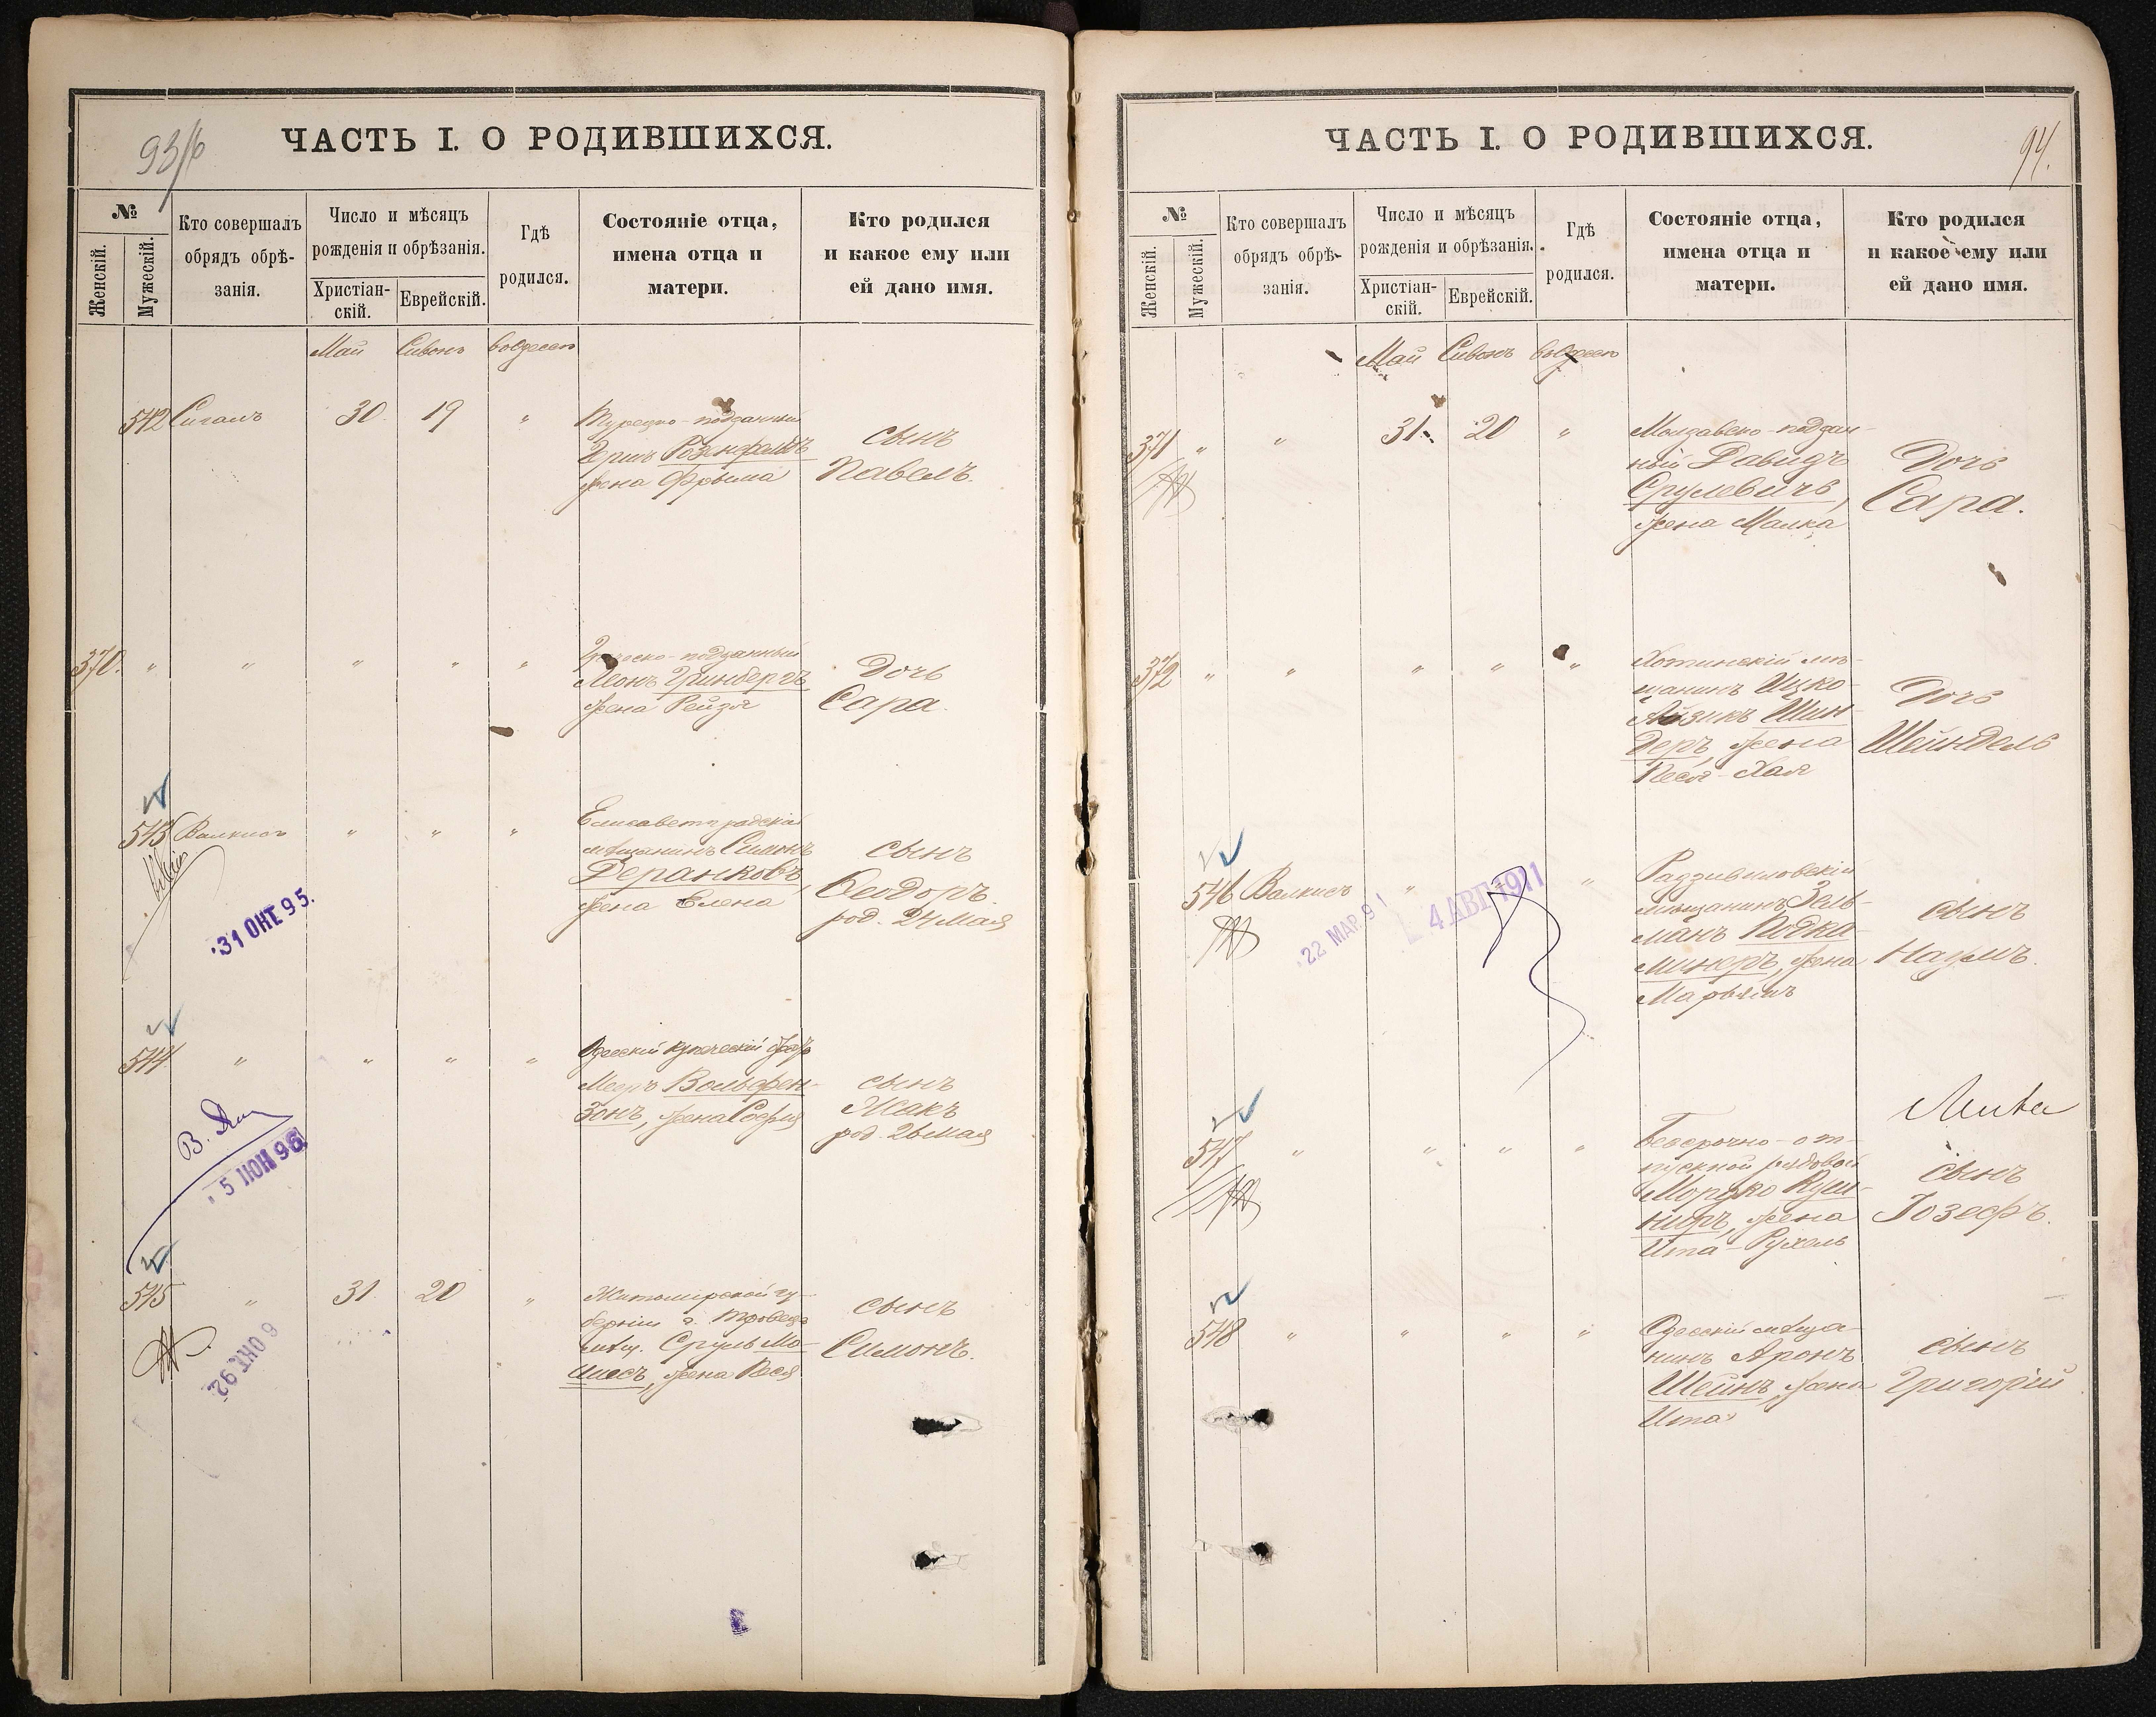 93/б
ЧАСТЬ I. О РОДИВШИХСЯ.
№
Женскій.
Мужескій.
Кто совершалъ
обрядъ обрѣ-
занія.
Число и мѣсяцъ
рожденія и обрѣзанія.
Христіан-
скій.
Еврейскій.
Гдѣ
родился.
Состояніе отца,
имена отца и
матери.
Кто родился
и какое ему или
ей дано имя.
Май Сивонъ
542 Сигалъ 30 19 "
Турецко-подданный
Розенфельдъ
жена Фрыма
сынъ
Павелъ.
370. " " " " "
подданный
Леонъ Гринбергъ,
жена Рейзя
Дочь
Сара.
543 Валкисъ " " "
Елисаветградскій
мѣщанинъ Симонъ
Деранковъ,
жена Елена
сынъ
Ѳеодоръ.
род. 24 Мая
31 ОКТ 95.
544 " " " "
Одесскій купеческій
Мееръ Вольфен-
зонъ, жена Софья
сынъ
Жакъ
род. 26 мая
5 НОЯ 96
545 " 31 20 "
Житомирской гу-
берніи г.
Сруль Мо-
шесъ, жена Рося
сынъ
Симонъ.
6 ОКТ. 92
94.
ЧАСТЬ I. О РОДИВШИХСЯ.
№
Женскій.
Мужескій.
Кто совершалъ
обрядъ обрѣ-
занія.
Число и мѣсяцъ
рожденія и обрѣзанія.
Христіан-
скій.
Еврейскій.
Гдѣ
родился.
Состояніе отца,
имена отца и
матери.
Кто родился
и какое ему или
ей дано имя.
Май Сивонъ
371 " " 31 20 "
Молдавско-поддан-
ный Давидъ
Срулевичъ,
жена Малка
Дочь
Сара.
372 " " " " "
Хотинскій мѣ-
щанинъ Ицко-
Айзикъ Шин-
деръ, жена
Песя-Хая
Дочь
Шейндель
546 Валкисъ " "
Радзивиловскій
мѣщанинъ Зель-
манъ Подка-
минеръ, жена
Марьямъ
сынъ
Наумъ.
22 МАР. 91
4 АВГ 1911
547 " " " "
Безсрочно-от-
пускной рядовой
Мордко Куш-
ниръ, жена
Ита-Рухель
сынъ
Іозефъ.
548 " " " "
Одесскій мѣща-
нинъ Аронъ
Шейнъ, жена
Ита
сынъ
Григорій